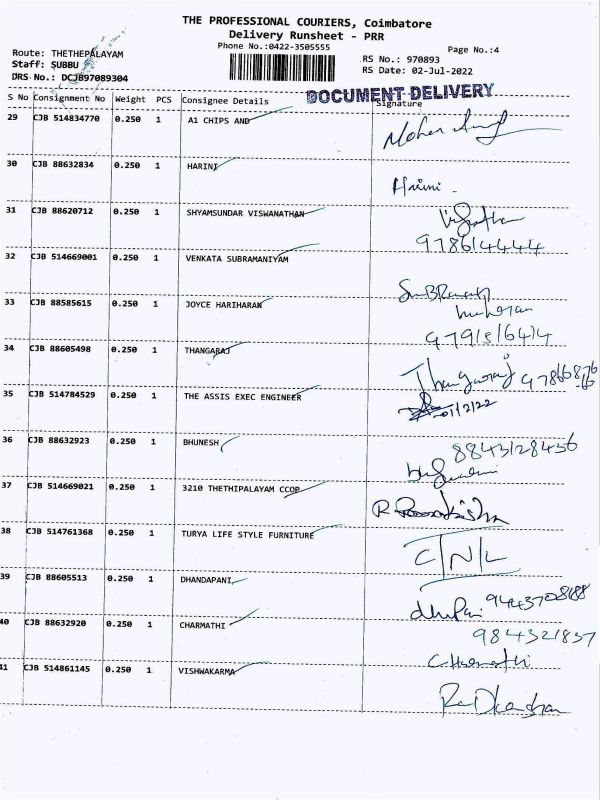 THE PROFESSIONAL COURIERS, Coimbatore
Delivery Runsheet - PRR
Phone No.:0422-3505555
Page No.:4
Route: THETHEPALAYAM
Staff: SUBBU
DRS No.: DCJB97089304
RS No.: 970893
RS Date: 02-Jul-2022
DOCUMENT DELIVERY
S No Consignment No Weight PCS Consignee Details Signature
29 CJB 514834770 0.250 1 A1 CHIPS AND
30 CJB 88632834 0.250 1 HARINI
Harini
31 CJB 88620712 0.250 1 SHYAMSUNDAR VISWANATHAN
32 CJB 514669001 0.250 1 VENKATA SUBRAMANIYAM
33 CJB 88585615 0.250 1 JOYCE HARIHARAN
34 CJB 88605498 0.250 1 THANGARAJ
Thangaraj
35 CJB 514784529 0.250 1 THE ASSIS EXEC ENGINEER
36 CJB 88632923 0.250 1 BHUNESH
8843128456
37 CJB 514669021 0.250 1 3210 THETHIPALAYAM CCOP
38 CJB 514761368 0.250 1 TURYA LIFE STYLE FURNITURE
C/N/L
39 CJB 88605513 0.250 1 DHANDAPANI,
40 CJB 88632920 0.250 1 CHARMATHI
984321837
41 CJB 514861145 0.250 1 VISHWAKARMA